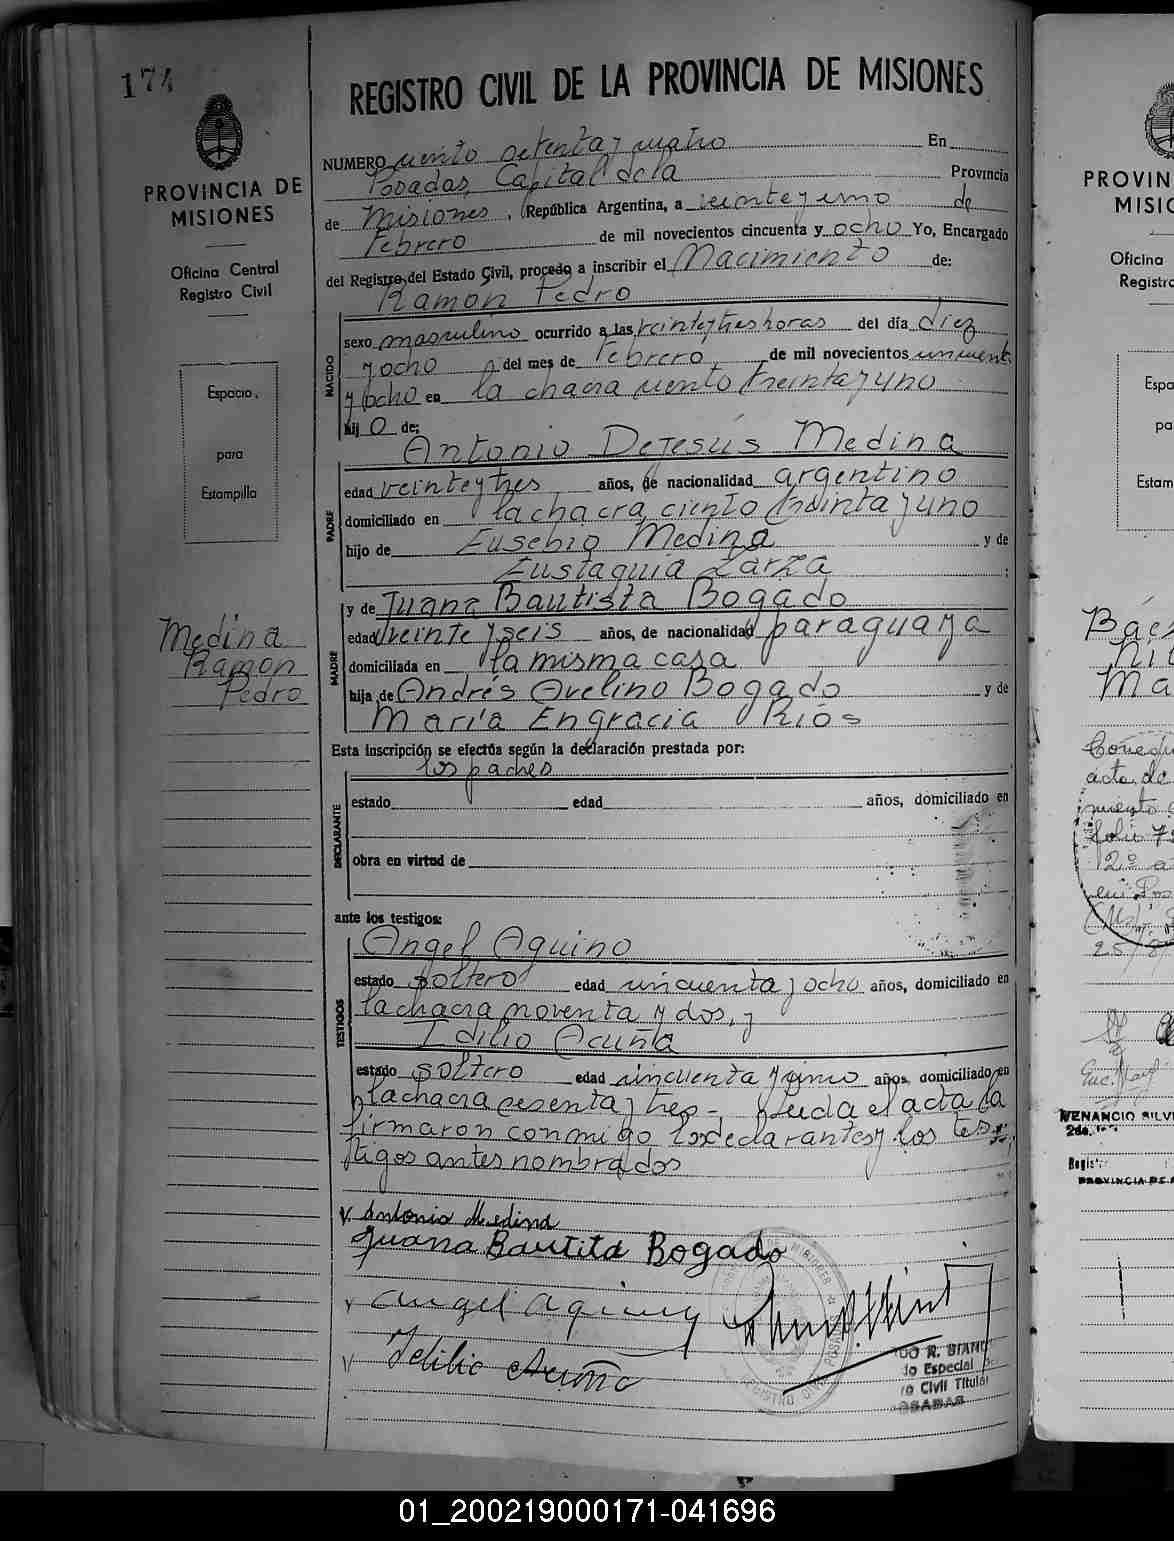 174
REGISTRO CIVIL DE LA PROVINCIA DE MISIONES
PROVINCIA DE
MISIONES
Oficina Central
Registro Civil
Espacio
para
Estampilla
Medina
Ramon
Pedro
NUMERO ciento setenta y cuatro En
Posadas, Capital de la Provincia
de Misiones, República Argentina, a veinte y uno de
Febrero de mil novecientos cincuenta y ocho Yo, Encargado
del Registro del Estado Civil, procedo a inscribir el Nacimiento de:
Ramon Pedro
NACIDO
sexo masculino ocurrido a las veinte y tres horas del día diez
y ocho del mes de Febrero de mil novecientos cincuenta
y ocho en la chacra ciento treinta y uno
hij o de:
Antonio DeJesús Medina
PADRE
edad veinte y tres años, de nacionalidad argentino
domiciliado en la chacra ciento treinta y uno
hijo de Eusebio Medina y de
Eustaquia Zarza ;
y de Juana Bautista Bogado
MADRE
edad veinte y seis años, de nacionalidad paraguaya
domiciliada en la misma casa
hija de Andrés Avelino Bogado y de
María Engracia Ríos
Esta inscripción se efectúa según la declaración prestada por:
los padres
DECLARANTE
estado edad años, domiciliado en
obra en virtud de
ante los testigos:
Angel Aquino
TESTIGOS
estado soltero edad cincuenta y ocho años, domiciliado en
la chacra noventa y dos, y
Idilio Acuña
estado soltero edad cincuenta y cinco años, domiciliado en
la chacra sesenta y tres -. Leida el acta la
firmaron conmigo los declarantes y los tes-
tigos antes nombrados
Antonio Medina
Juana Bautita Bogado
angel aquiny
Idilio Acuña
DO R. BIAN
do Especial
o Civil Titular
POSADAS
PROVIN
MISIO
Oficina
Registro
Espa
pa
Estam
Báez
Ma
acta de
miento
2º a
VENANCIO SILV
2do.
Regis
PROVINCIA DE
01_200219000171-041696